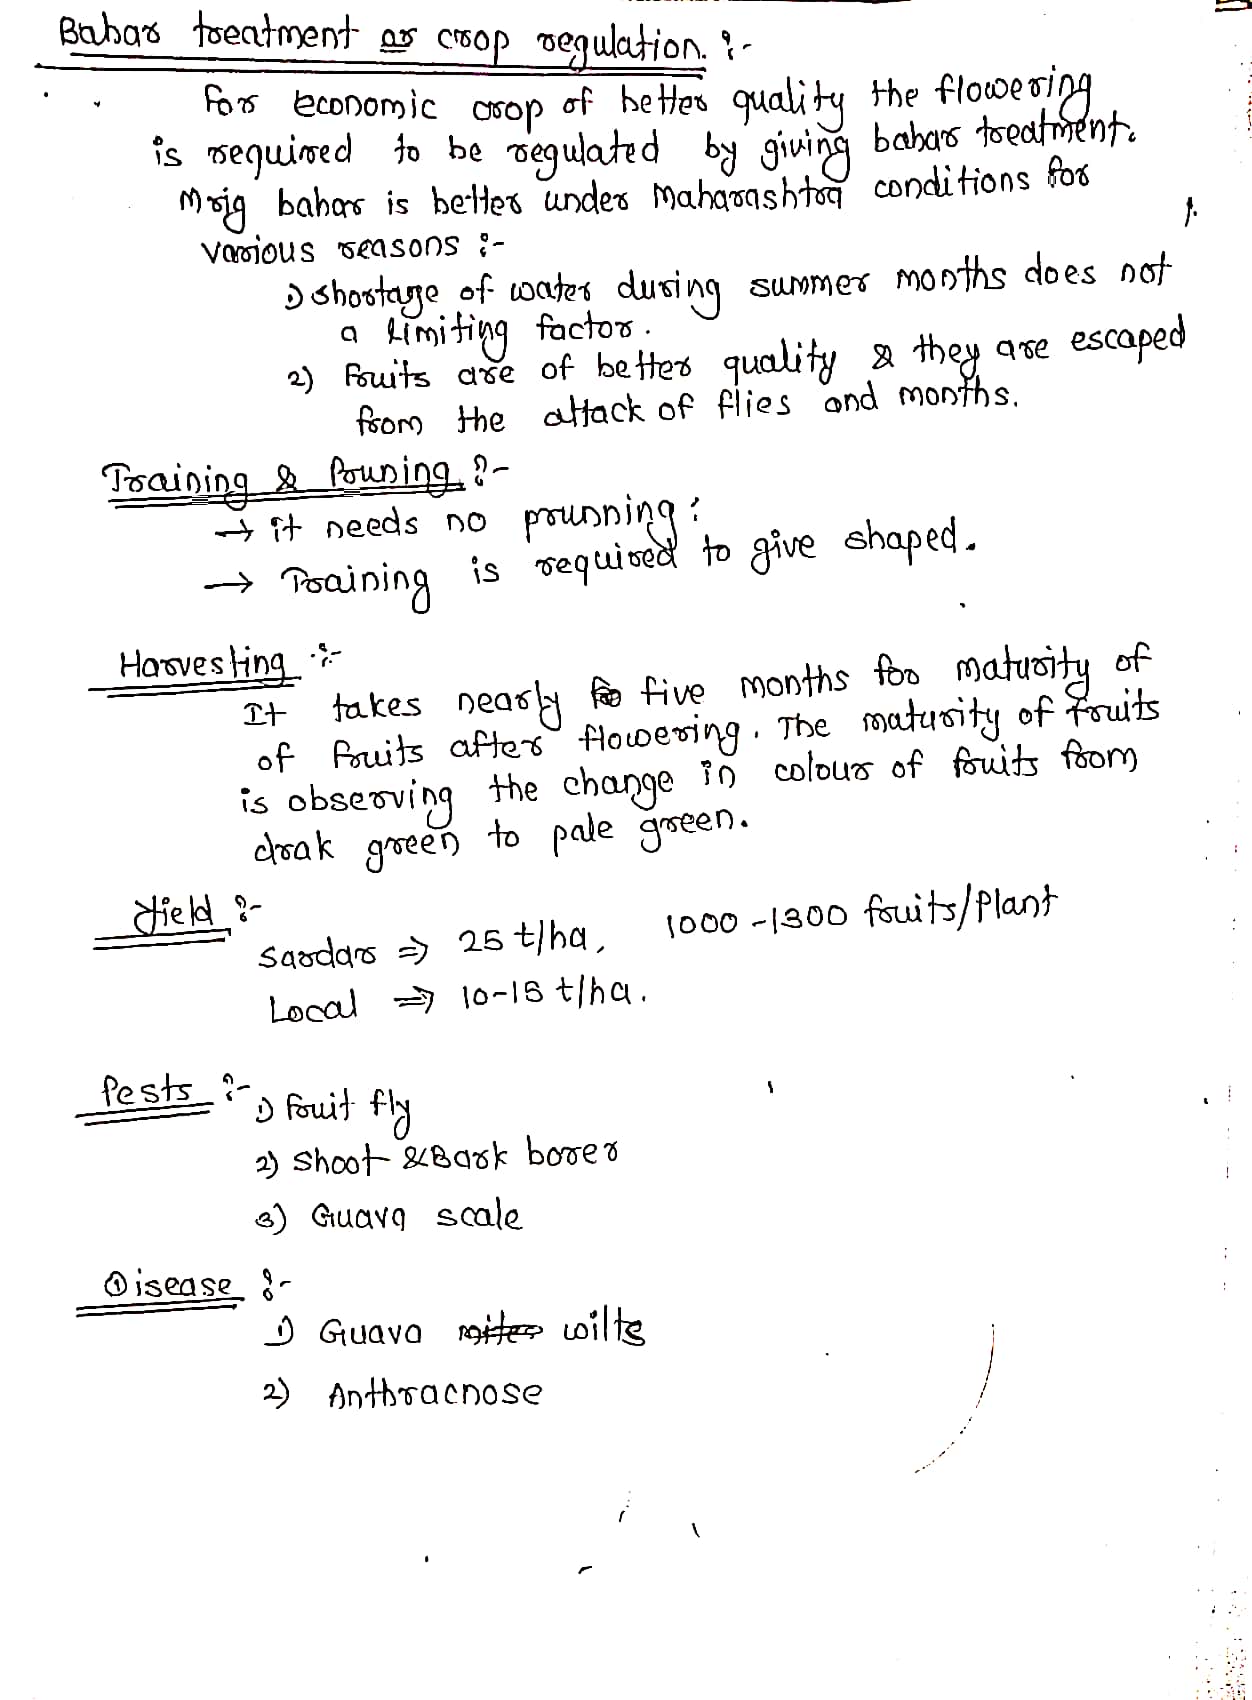 Bahar treatment or crop regulation. :-
For economic crop of better quality the flowering
is required to be regulated by giving bahar treatment.
Mrig bahar is better under Maharashtra conditions for
various reasons :-
1) Shortage of water during summer months does not
a limiting factor.
2) Fruits are of better quality & they are escaped
from the attack of flies and months.
Training & Pruning :-
→ it needs no prunning :
→ Training is required to give shaped.
Harvesting :-
It takes nearly five months for maturity of
of fruits after flowering. The maturity of fruits
is observing the change in colour of fruits from
drak green to pale green.
Yield :-
Sardar ⇒ 25 t/ha, 1000-1300 fruits/Plant
Local ⇒ 10-15 t/ha.
Pests :-
1) Fruit fly
2) Shoot & Bark borer
3) Guava scale
Disease :-
1) Guava mites wilts
2) Anthracnose